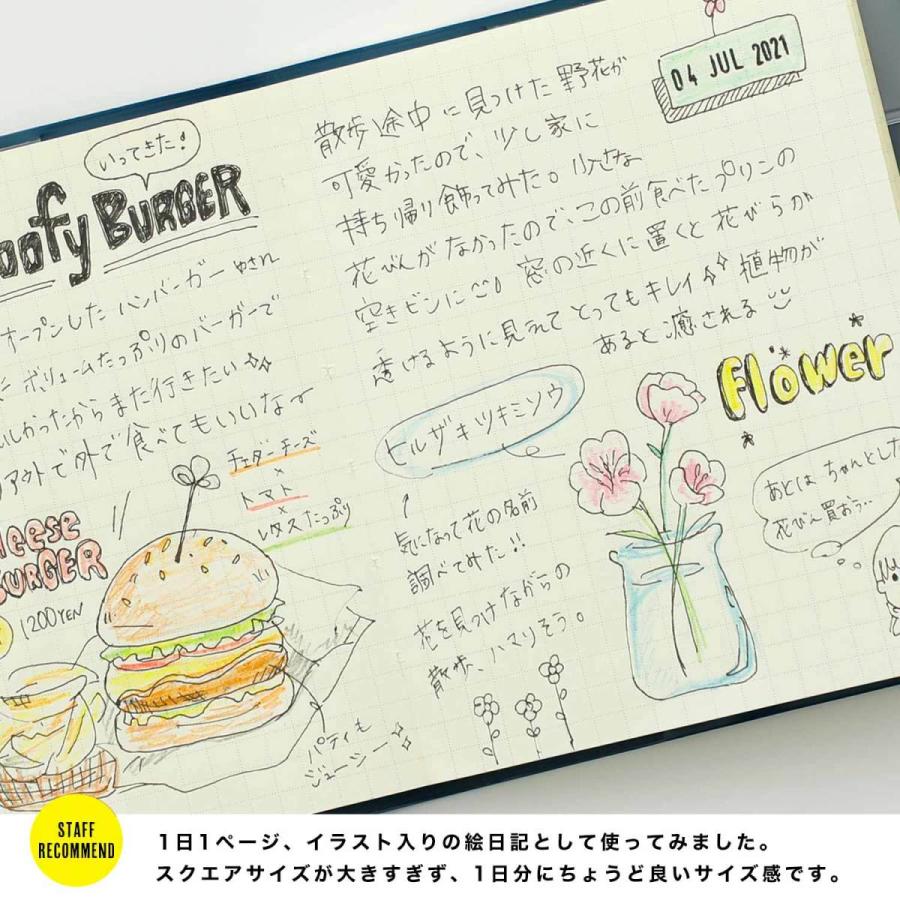 いってきた!
oofy BURGER
オープンしたハンバーガーやされ
ボリュームたっぷりのバーガーで
しかったからまた行きたい
アウトで外で食べてもいいなー
チェダーチーズ
×
トマト
×
レタスたっぷり
heese
BURGER
1200YEN
パティも
ジューシー
04 JUL 2021
散歩途中に見つけた野花が
可愛かったので、少し家に
持ち帰り飾ってみた。小さな
花びんがなかったので、この前食べたプリンの
空きビンに 窓の近くに置くと花びらが
透けるように見えてとってもキレイ 植物が
あると癒される
Flower
ヒルザキツキミソウ
↑
気になって花の名前
調べてみた!!
花を見つけながらの
散歩、ハマりそう。
あとは ちゃんとした
花びん買おう…
STAFF
RECOMMEND
1日1ページ、イラスト入りの絵日記として使ってみました。
スクエアサイズが大きすぎず、1日分にちょうど良いサイズ感です。